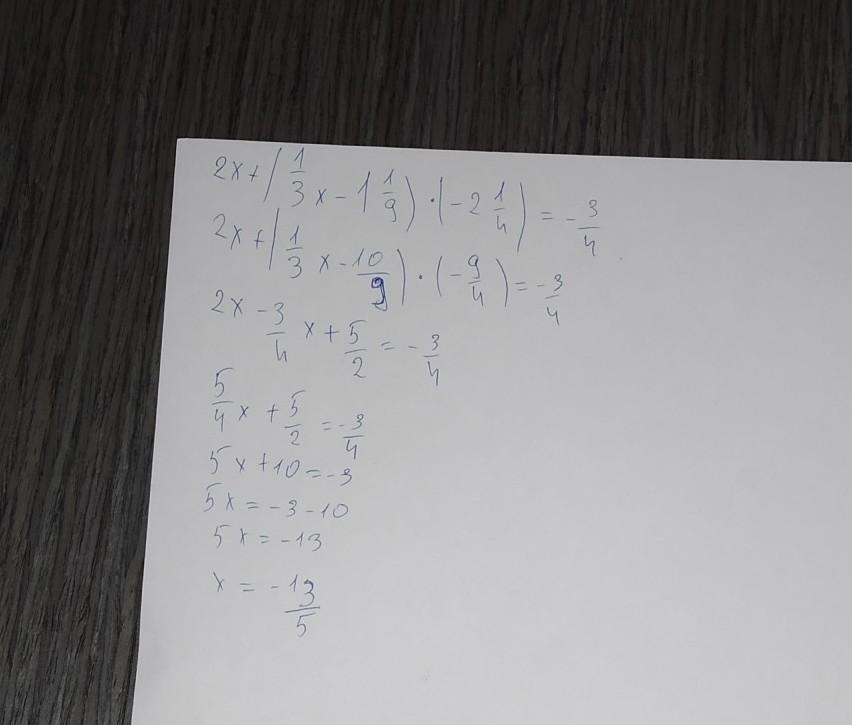 2x + (1/3 x - 1 1/9) · (-2 1/4) = -3/4
2x + (1/3 x - 10/9) · (-9/4) = -3/4
2x - 3/4 x + 5/2 = -3/4
5/4 x + 5/2 = -3/4
5x + 10 = -3
5x = -3 - 10
5x = -13
x = -13/5